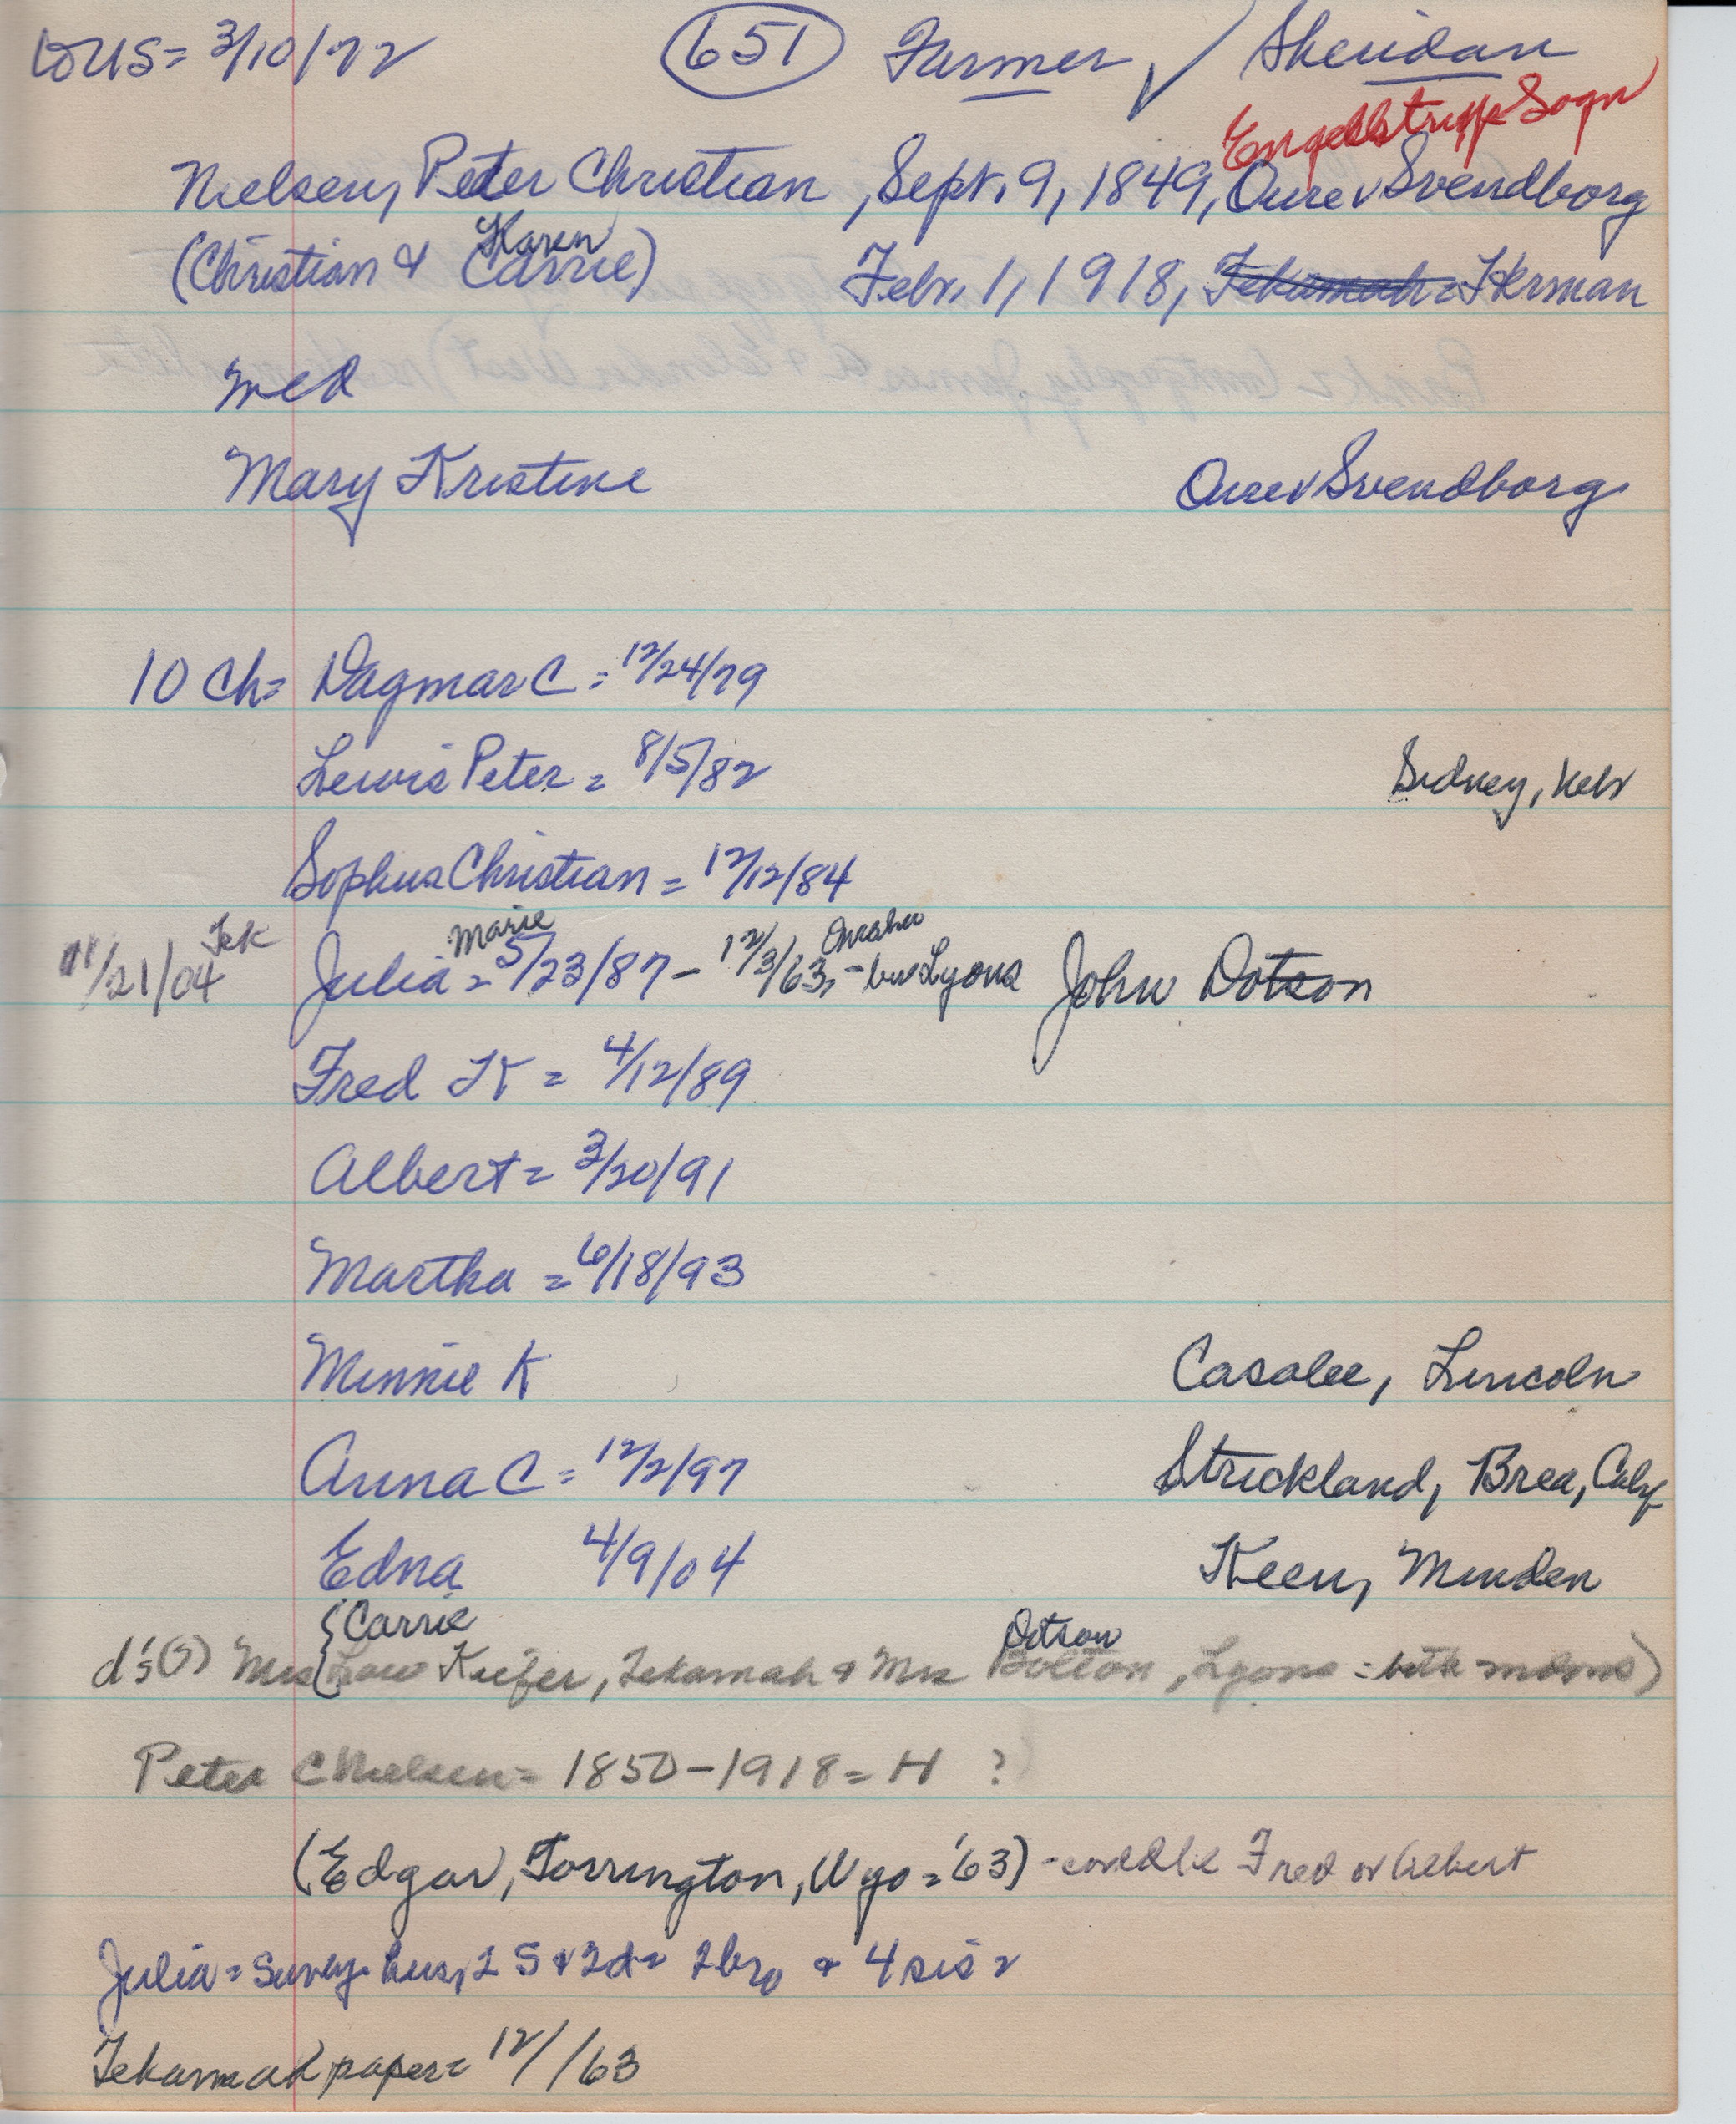 to US = 3/10/72 (651) Farmer ✓ Sheridan
Sogn
Nielsen, Peter Christian, Sept. 9, 1849, Oure Svendborg
Karen
(Christian & Carrie) Febr. 1, 1918, Tekamah = Herman
wed
Mary Kristine Oure Svendborg
10 Ch = Dagmar C = 12/24/79
Lewis Peter = 8/5/82 Sidney, Nebr
Sophus Christian = 12/12/84
Tek Marie Omaha
11/21/04 Julia = 5/23/87 - 12/3/63, - bur Lyons John Dotson
Fred K = 4/12/89
Albert = 3/20/91
Martha = 6/18/93
Minnie K Casalee, Lincoln
Anna C = 12/2/97 Strickland, Brea, Calif
Edna 4/9/04 Keen, Minden
{Carrie Dotson
d's (?) Mrs Kiefer, Tekamah & Mrs Bolton, Lyons = both
Peter C Nielsen = 1850-1918 = H ?
(Edgar, Torrington, Wyo = '63) - could be Fred or Albert
Julia = Surv by hus, 2 S & 2d = 2 bro & 4 sis =
Tekamah paper = 12/ /63